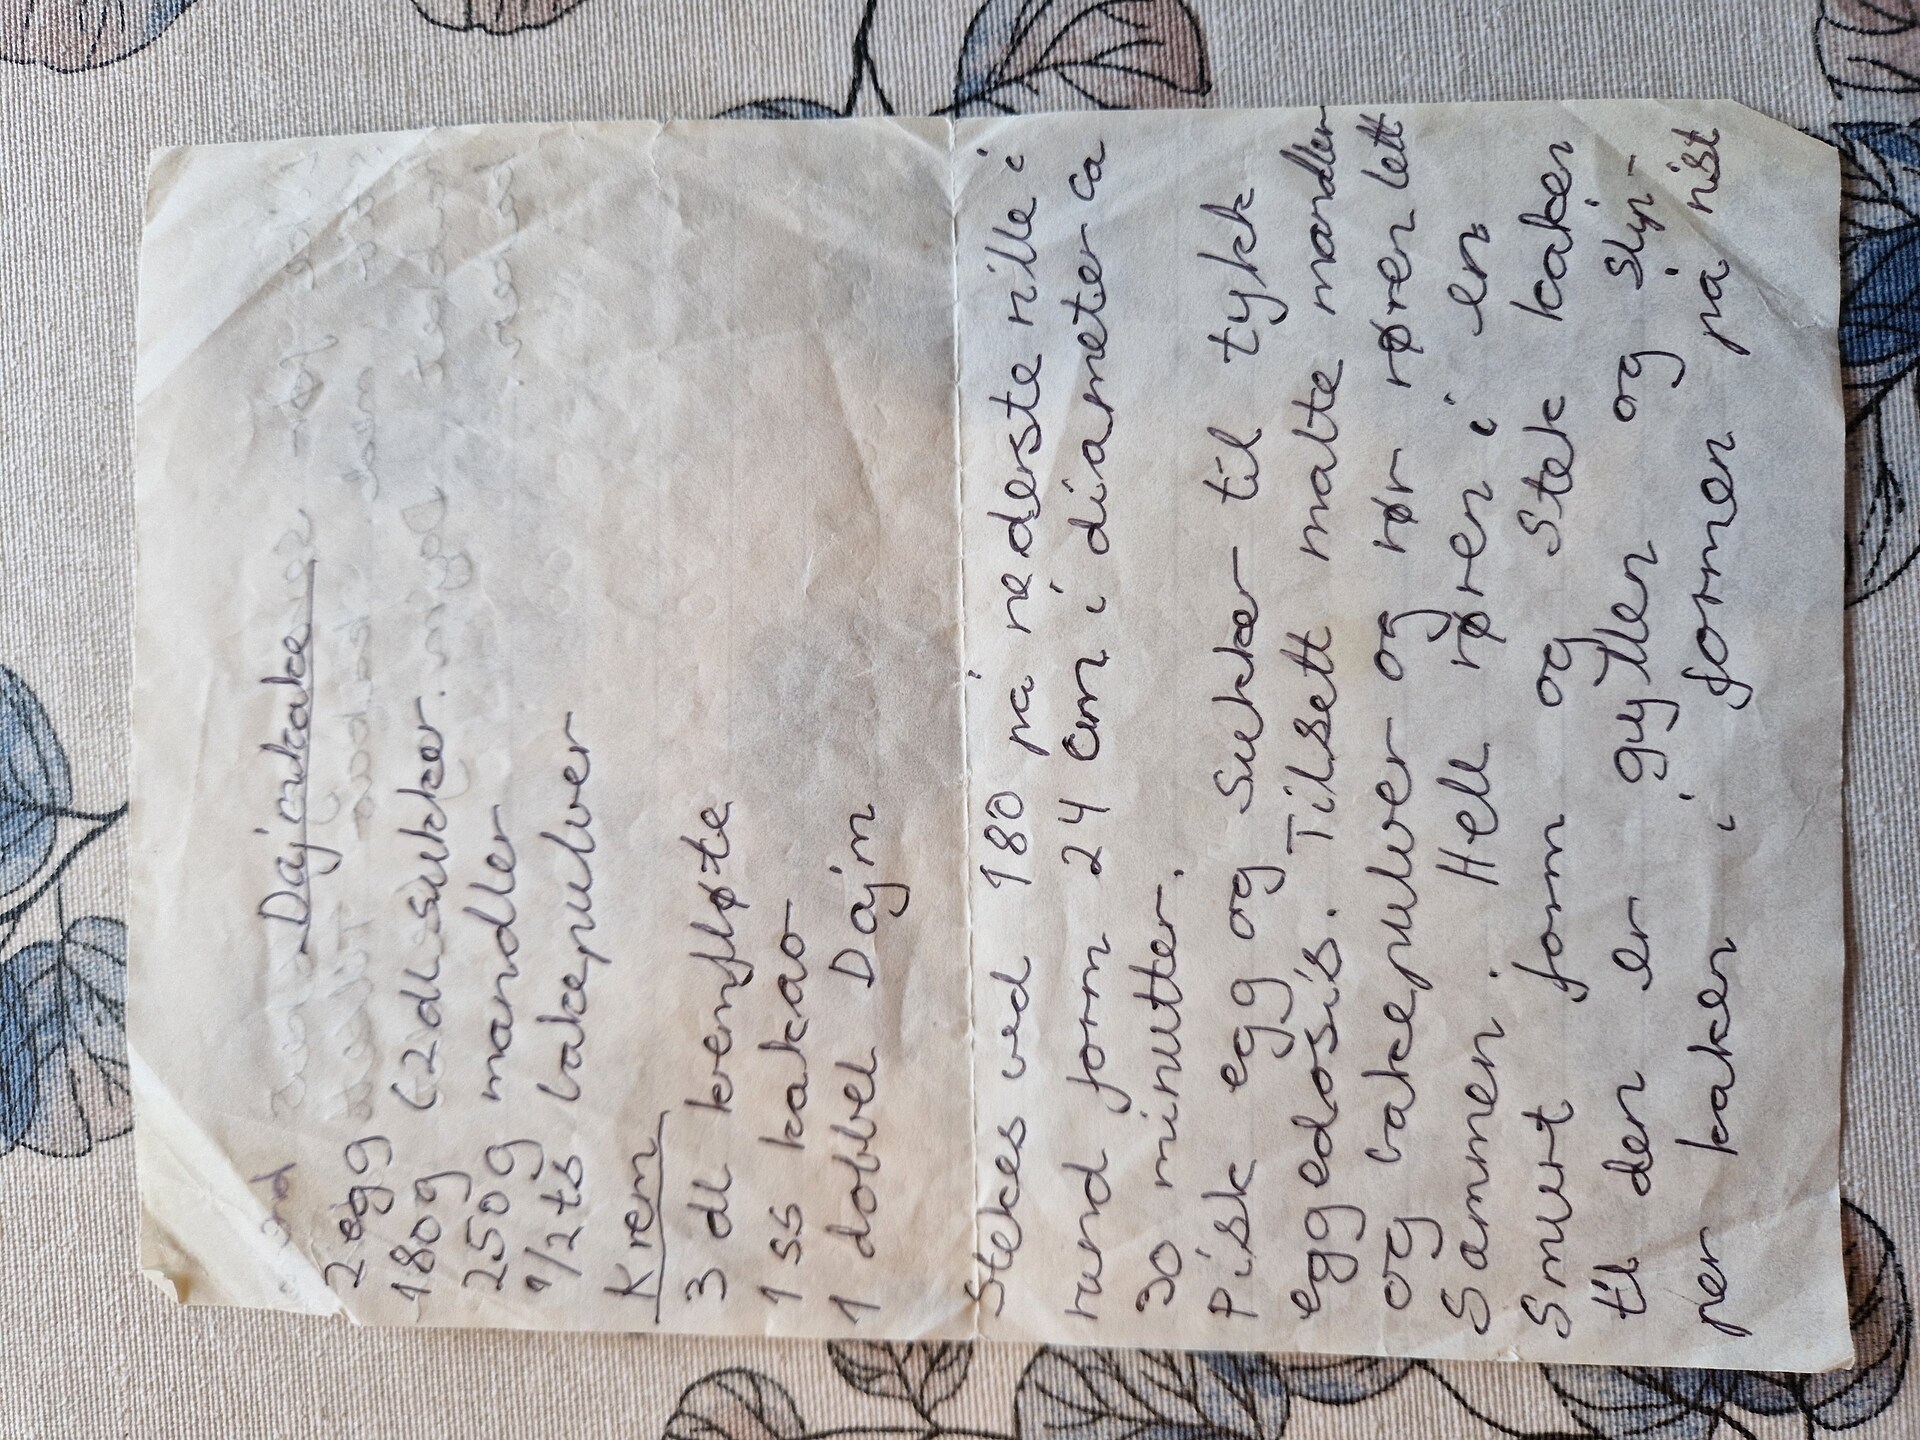 Dajmkake
2 egg
180g (2dl sukker.
250g mandler
1/2 ts bakepulver
Krem
3 dl kremfløte
1 ss kakao
1 dobbel Dajm
Stekes ved 180 på nederste rille i
rund form 24 cm i diameter ca
30 minutter.
Pisk egg og sukker til tykk
eggedosis. Tilsett malte mandler
og bakepulver og rør røren lett
Sammen. Hell røren i en
Smurt form og Stek kaken
til den er gyllen og slip-
per kaken i formen på rist